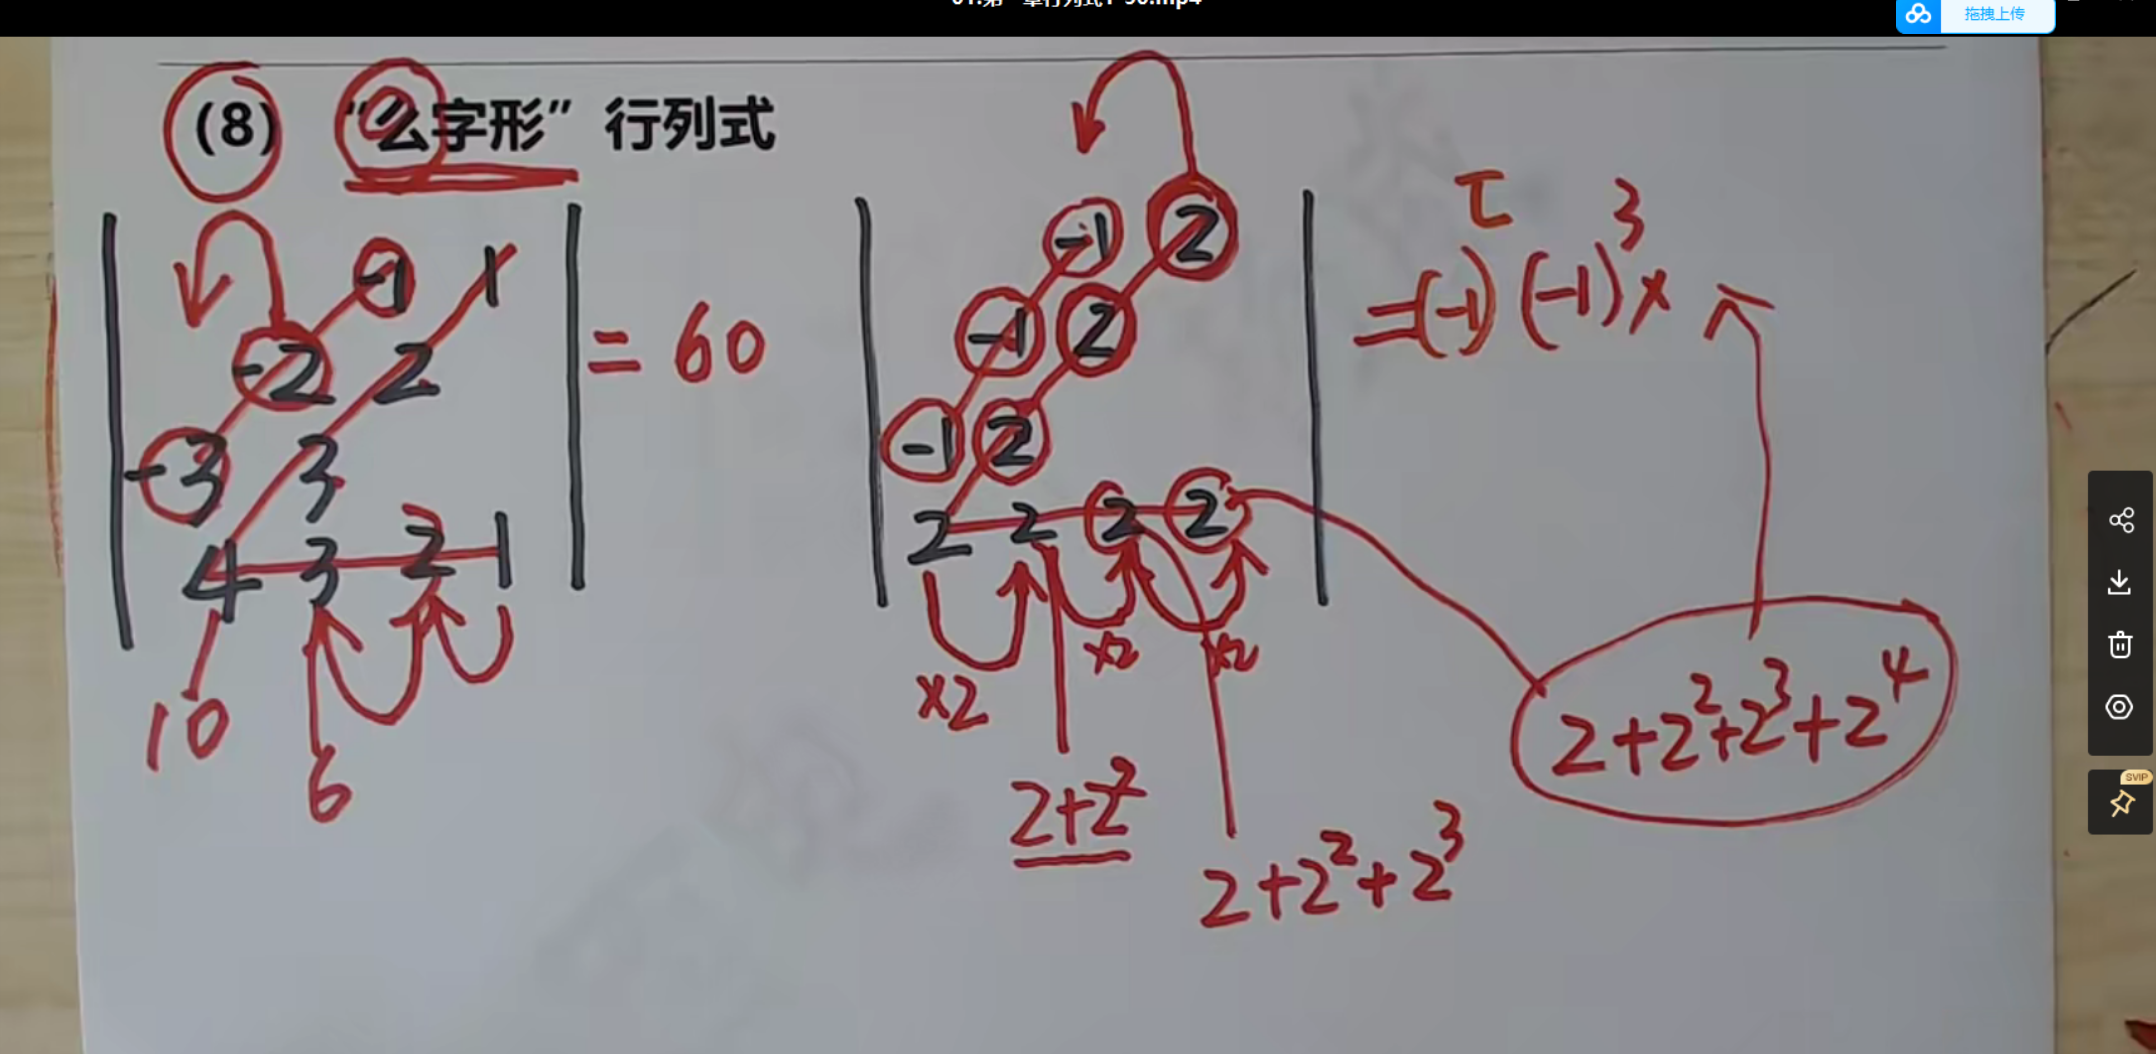 拖拽上传
(8) “么字形” 行列式
-1 1
-2 2
-3 3
4 3 2 1
= 60
10
6
-1 2
-1 2
-1 2
2 2 2 2
×2 ×2 ×2
2+2²
2+2²+2³
τ
=(-1) (-1)³×
2+2²+2³+2⁴
SVIP